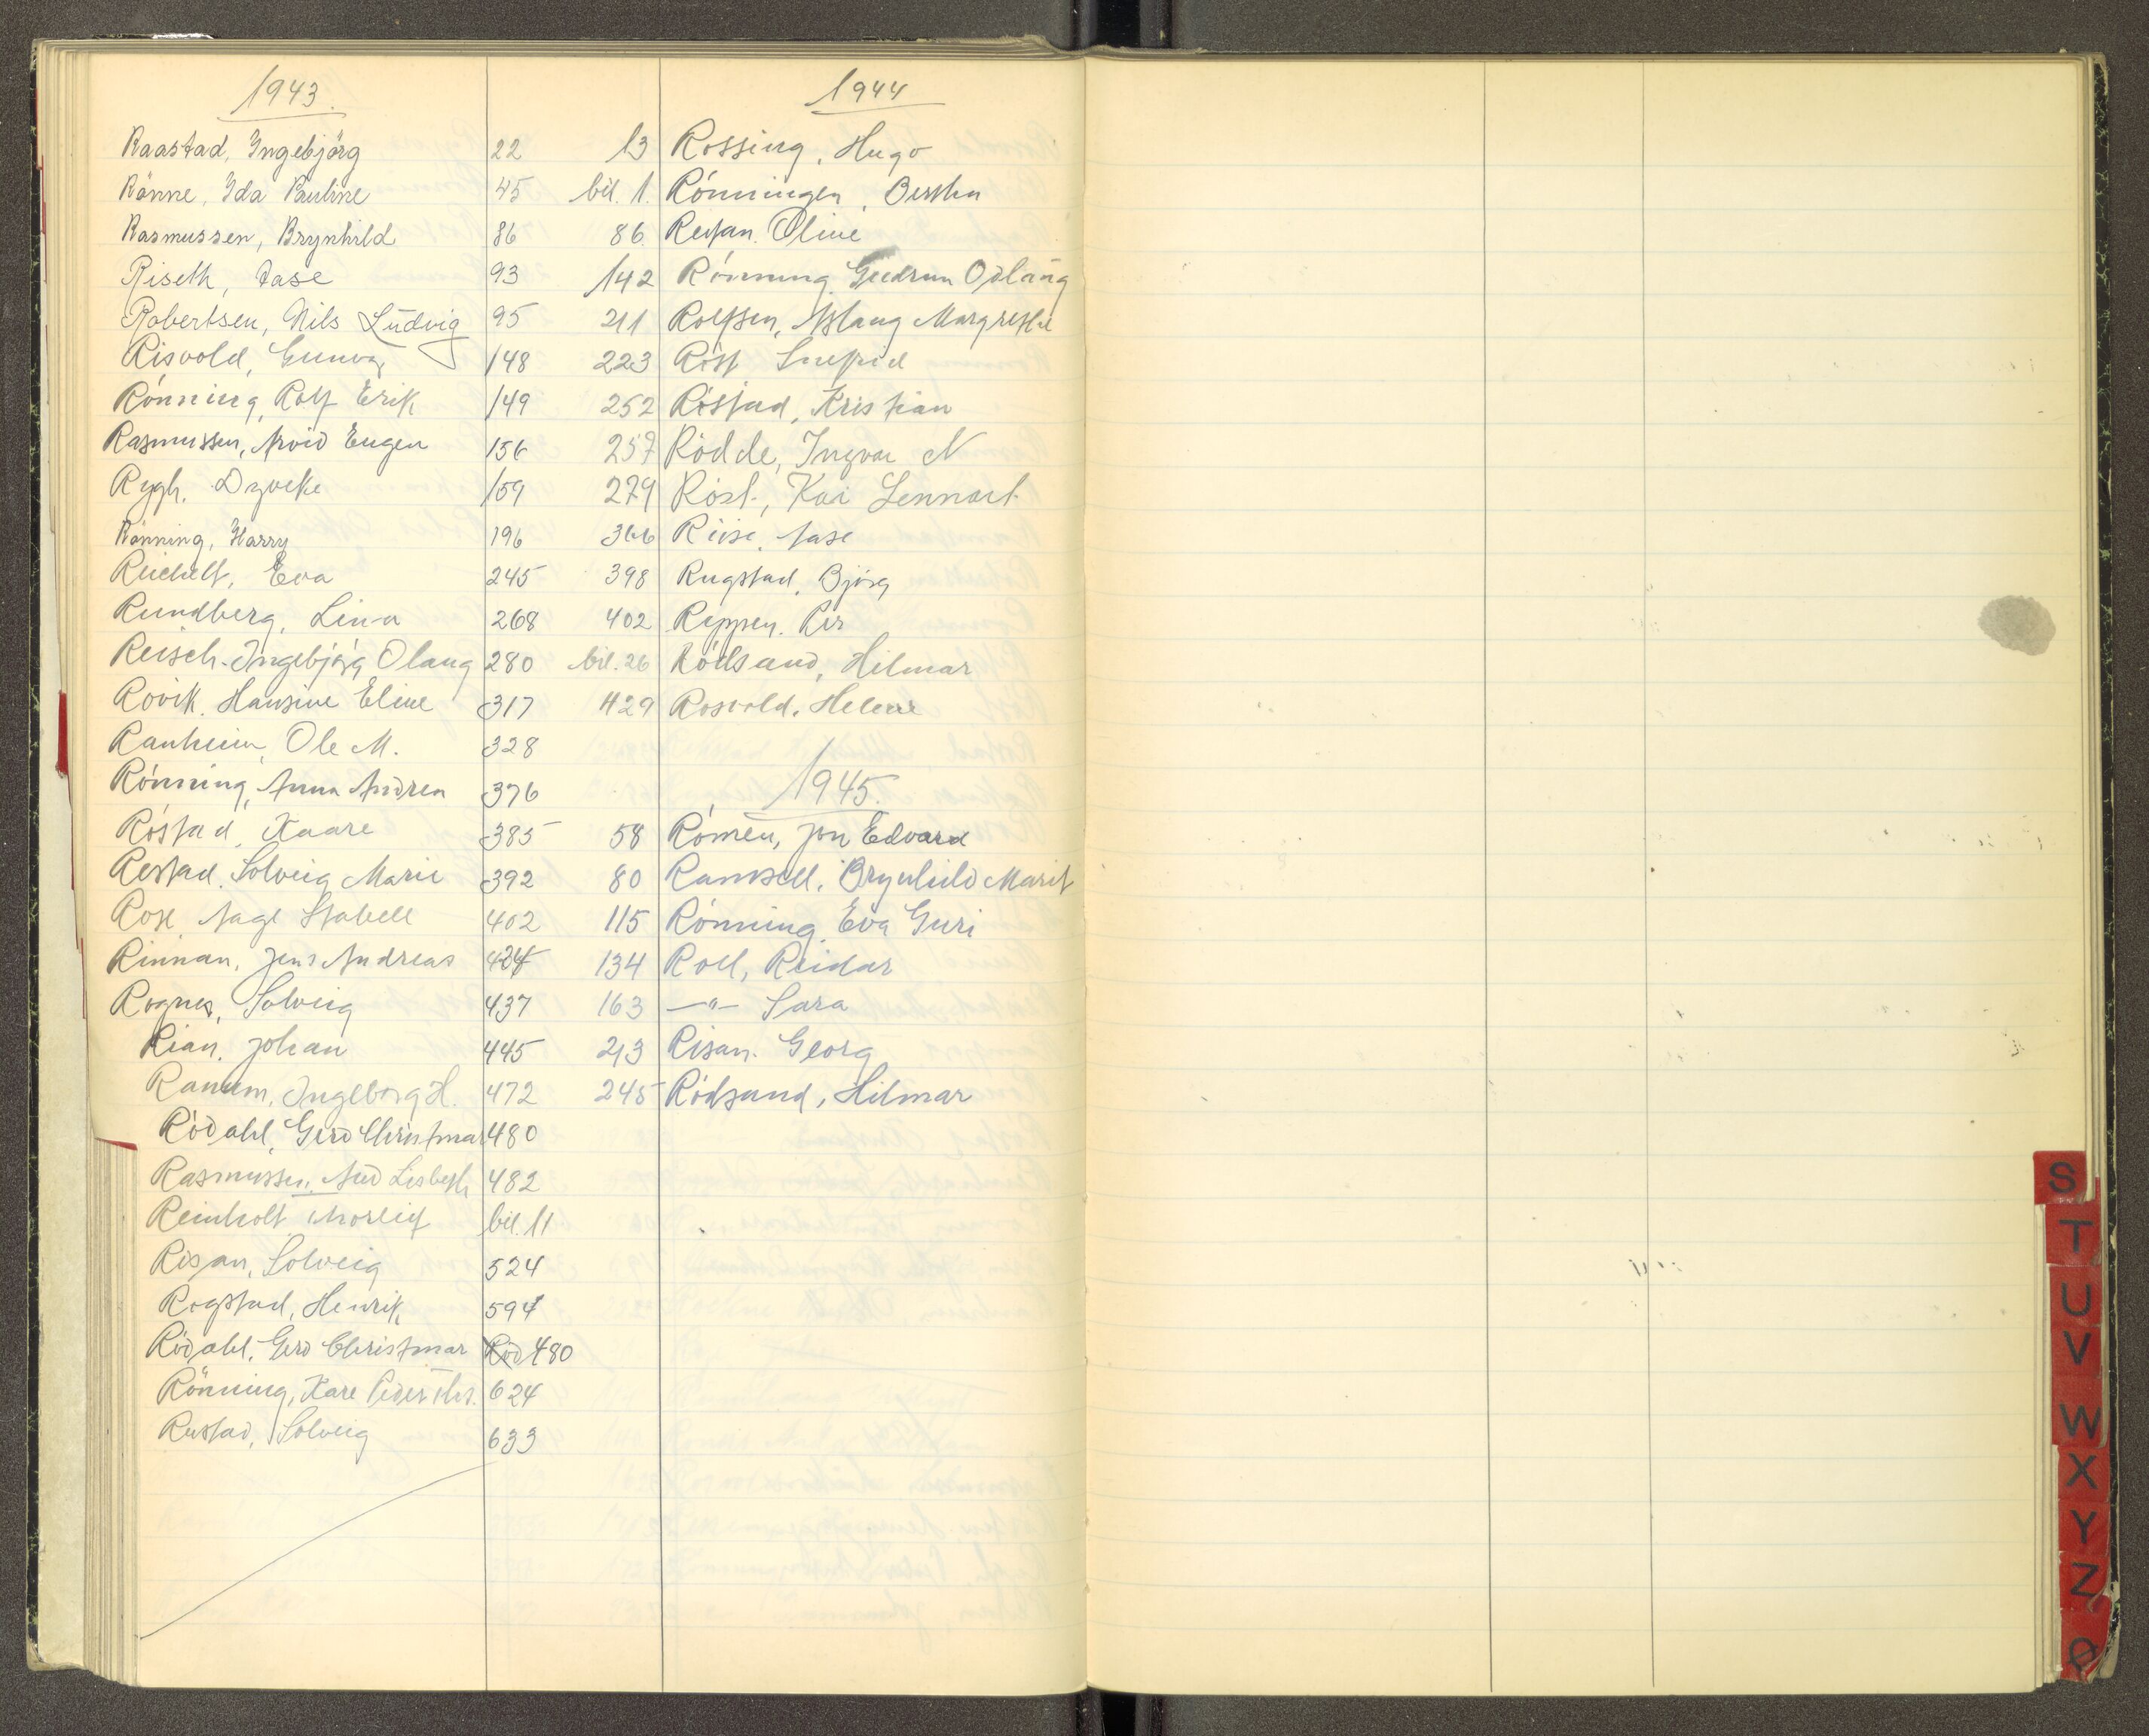 1943.
Raastad, Ingebjörg 22
Rönne, Ida Pauline 45
Rasmussen, Brynhild 86
Riseth, Aase 93
Robertsen, Nils Ludvig 95
Risvold, Gunvor 148
Rönning, Rolf Erik 149
Rasmussen, Arvid Eugen 156
Rygh, Dyveke 159
Rönning, Harry 196
Reichelt, Eva 245
Rundberg, Lina 268
Reisch, Ingebjörg Olaug 280
Rovik, Hansine Eline 317
Ranheim, Ole M. 328
Rónning, Anna Andrea 376
Róstad, Kaare 385
Restad, Solveig Marie 392
Rose, Aage Stabell 402
Rinnan, Jens Andreas 424
Rognes, Solveig 437
Rian, Johan 445
Ranum, Ingeborg H. 472
Ródahl, Gerd Christmar 480
Rasmussen, Aud Lisbeth 482
Reinholt bil. 11
Risan, Solveig 524
Rogstad, Henrik 594
Ródahl, Gerd Christmar Röd 480
Rönning, Kare Peder 624
Rustad, Solveig 633
1944
13 Rossing, Hugo
bil. 1. Rónningen, Bertha
86. Reitan Oline
142 Rónning Gudrun Odlaug
211 Rolfsen, Aslaug Margrethe
223 Róst Snefrid
252 Róstad, Kristian
257 Rödde, Ingvar N
279 Róst, Kai Lennart
366 Riise, Aase
398 Rugstad, Bjórg
402 Reppen, Per
bil. 26 Ródsand, Hilmar
429 Rosvold, Helene
1945.
58 Rómen, Jon Edvard
80 Ramsell, Brynhild Marit
115 Rónning, Eva Guri
134 Roel, Reidar
163 —"— Sara
213 Risan, Georg
245 Ródsand, Hilmar
S
T
U
V
W
X
Y
Z
Ø